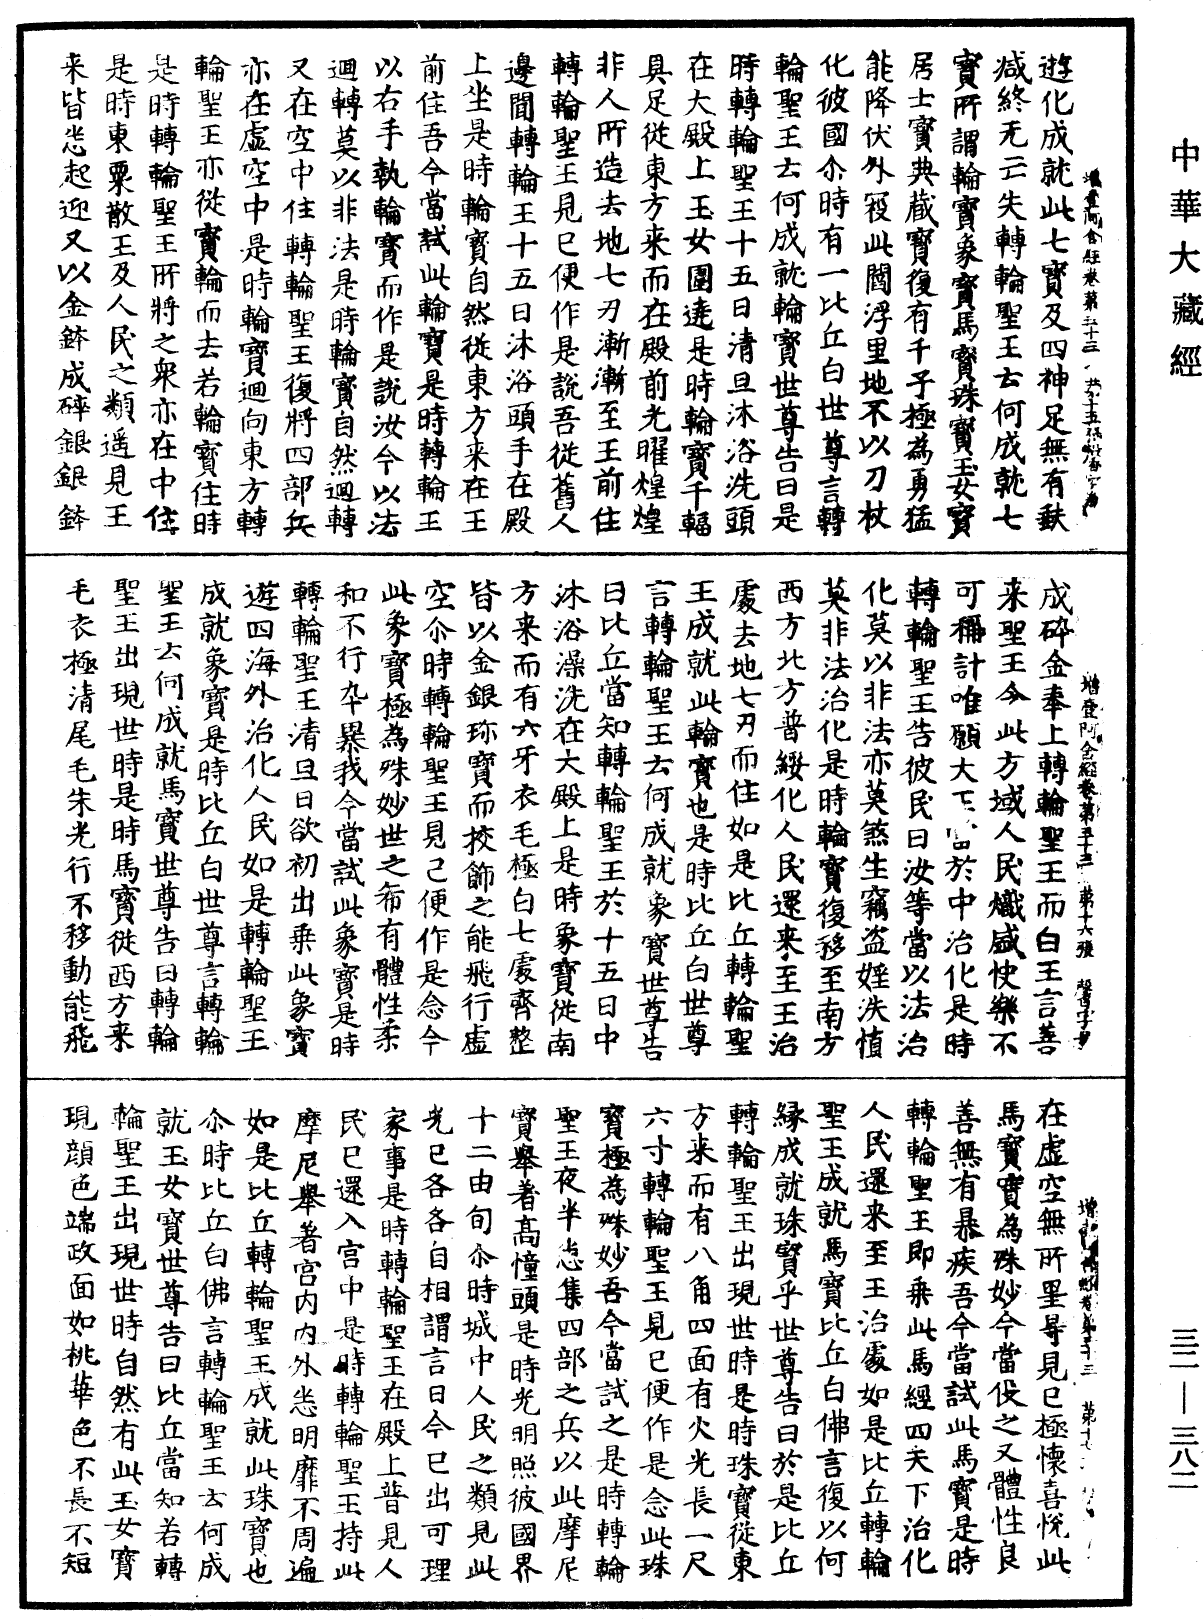 中華大藏經
遊化成就此七寶及四神足無有缺
減終无亡失轉輪聖王云何成就七
寶所謂輪寶象寶馬寶珠寶玉女寶
居士寶典藏寶復有千子極為勇猛
能降伏外寇此閻浮里地不以刀杖
化彼國尒時有一比丘白世尊言轉
輪聖王云何成就輪寶世尊告曰是
時轉輪聖王十五日清旦沐浴洗頭
在大殿上玉女圍遶是時輪寶千輻
具足從東方来而在殿前光曜煌煌
非人所造去地七刃漸漸至王前住
轉輪聖王見已便作是說吾從舊人
邊聞轉輪王十五日沐浴頭手在殿
上坐是時輪寶自然從東方来在王
前住吾今當試此輪寶是時轉輪王
以右手執輪寶而作是說汝今以法
迴轉莫以非法是時輪寶自然迴轉
又在空中住轉輪聖王復將四部兵
亦在虛空中是時輪寶迴向東方轉
輪聖王亦從寶輪而去若輪寶住時
是時轉輪聖王所將之衆亦在中住
是時東粟散王及人民之類遥見王
来皆悉起迎又以金鉢成碎銀銀鉢
成碎金奉上轉輪聖王而白王言善
来聖王今此方域人民熾盛快樂不
可稱計唯願大王當於中治化是時
轉輪聖王告彼民曰汝等當以法治
化莫以非法亦莫煞生竊盗婬泆慎
莫非法治化是時輪寶復移至南方
西方北方普綏化人民還来至王治
處去地七刃而住如是比丘轉輪聖
王成就此輪寶也是時比丘白世尊
言轉輪聖王云何成就象寶世尊告
曰比丘當知轉輪聖王於十五日中
沐浴澡洗在大殿上是時象寶從南
方来而有六牙衣毛極白七處齊整
皆以金銀珎寶而挍飾之能飛行虛
空尒時轉輪聖王見已便作是念今
此象寶極為殊妙世之希有體性柔
和不行卒暴我今當試此象寶是時
轉輪聖王清旦日欲初出乘此象寶
遊四海外治化人民如是轉輪聖王
成就象寶是時比丘白世尊言轉輪
聖王云何成就馬寶世尊告曰轉輪
聖王出現世時是時馬寶從西方来
毛衣極清尾毛朱光行不移動能飛
在虛空無所罣㝵見已極懷喜悅此
馬寶寶為殊妙今當伇之又體性良
善無有暴疾吾今當試此馬寶是時
轉輪聖王即乘此馬經四天下治化
人民還来至王治處如是比丘轉輪
聖王成就馬寶比丘白佛言復以何
緣成就珠寶乎世尊告曰於是比丘
轉輪聖王出現世時是時珠寶從東
方来而有八角四面有火光長一尺
六寸轉輪聖王見已便作是念此珠
寶極為殊妙吾今當試之是時轉輪
聖王夜半悉集四部之兵以此摩尼
寶舉著高幢頭是時光明照彼國界
十二由旬尒時城中人民之類見此
光已各各自相謂言日今已出可理
家事是時轉輪聖王在殿上普見人
民已還入宫中是時轉輪聖王持此
摩尼舉著宫内内外悉明靡不周遍
如是比丘轉輪聖王成就此珠寶也
尒時比丘白佛言轉輪聖王云何成
就玉女寶世尊告曰比丘當知若轉
輪聖王出現世時自然有此玉女寶
現顔色端政面如桃華色不長不短
三二—三八二